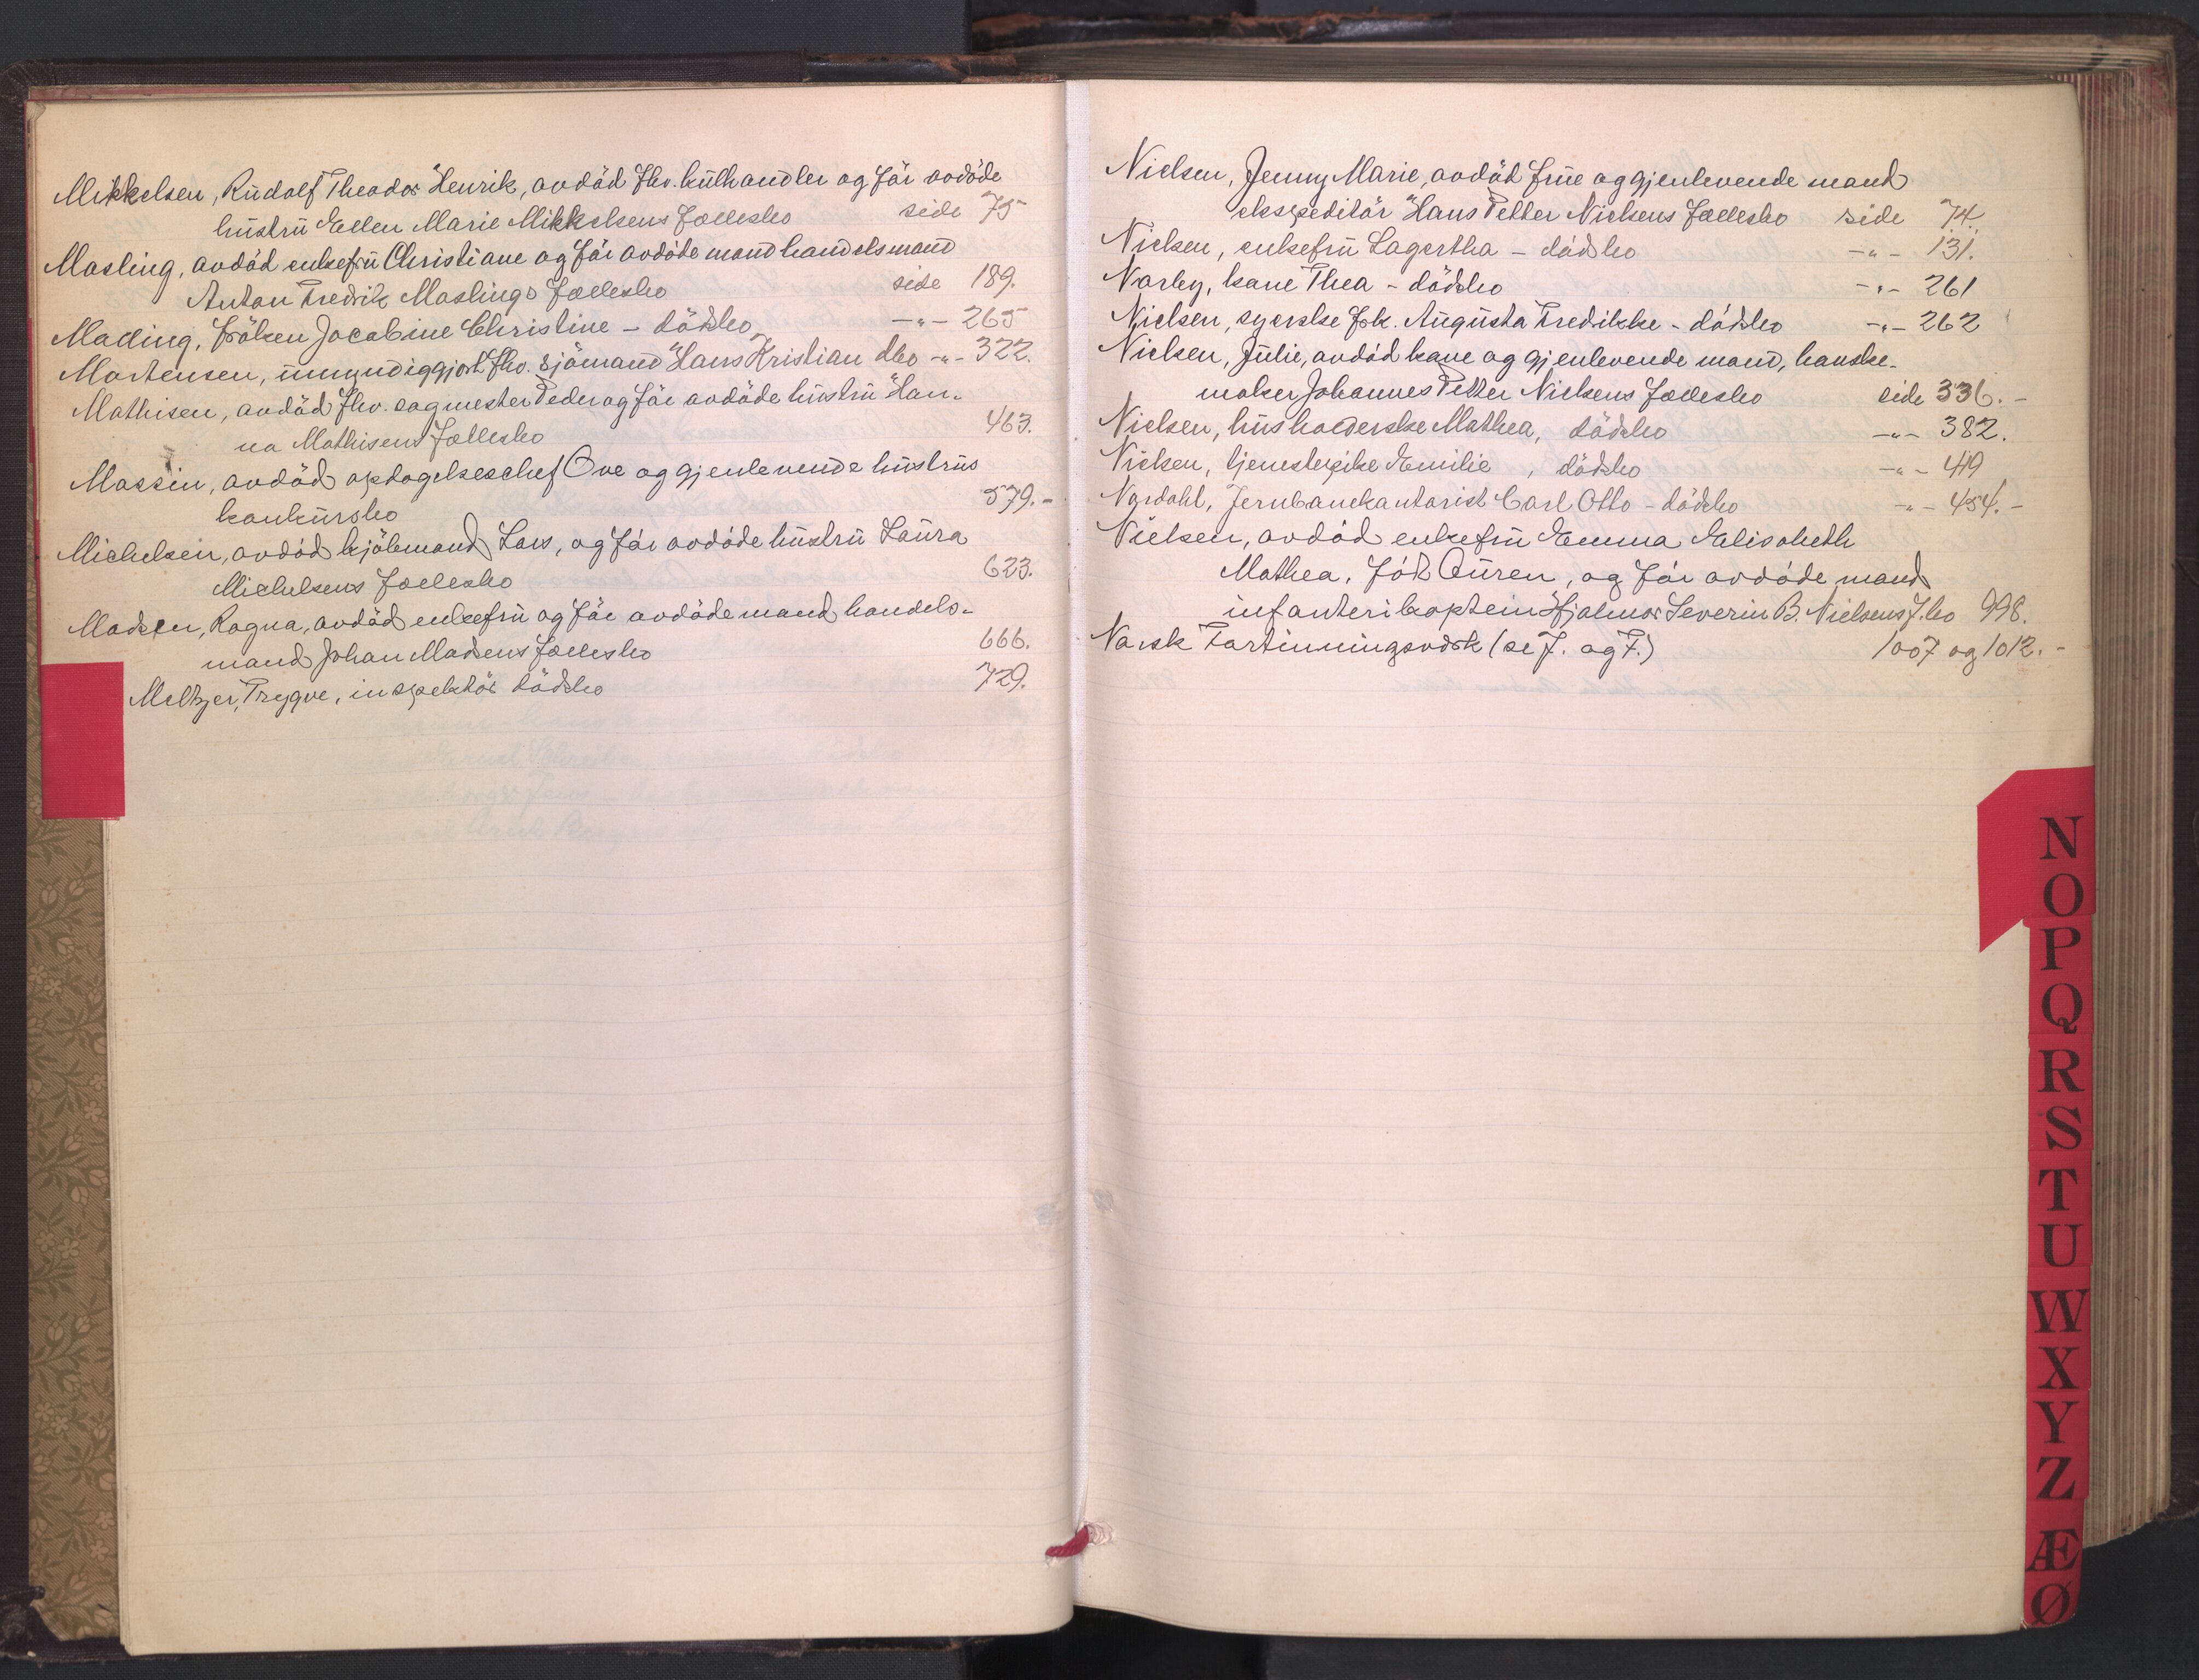 Mikkelsen, Rudolf Theodor Henrik, avdöd fhv. kulhandler og før avdöde
hustru Ellen Marie Mikkelsens fællesbo side 75
Masling, avdöd enkefru Christiane og før avdöde mand handelsmand
Anton Fredrik Maslings fællesbo side 189.
Mading, fröken Jacobine Christine - dödsbo -"- 265
Mortensen, umyndiggjort fhv. sjömand Hans Kristian dbo -"- 322.
Mathisen, avdöd fhv. sagmester Peder og før avdöde hustru Han-
na Mathisens fællesbo 463.
Massin, avdöd opdagelseschef Ove og gjenlevende hustrus
konkursbo 579.-
Michelsen, avdöd kjöbmand Lars, og før avdöde hustru Laura
Michelsens fællesbo 623.
Madsen, Ragna, avdöd enkefru og før avdöde mand handels-
mand Johan Madsens fællesbo 666.
Meltzer, Trygve, inspektör dödsbo 729.
Nielsen, Jenny Marie, avdöd frue og gjenlevende mand
ekspeditör Hans Petter Nielsens fællesbo side 74.
Nielsen, enkefru Lagertha - dödsbo -"- 131.
Narby, kane Thea - dödsbo -"- 261
Nielsen, syerske frk. Augusta Fredikke - dödsbo -"- 262
Nielsen, Julie, avdöd kone og gjenlevende mand, hanske-
maker Johannes Petter Nielsens fællesbo side 336.-
Nielsen, husholderske Mathea, dödsbo -"- 382.
Nielsen, tjenestepike Emilie, dödsbo -"- 419
Nordahl, Jernbanekontorist Carl Otto - dödsbo -"- 454.-
Nielsen, avdöd enkefru Emma Elisabeth
Mathea, född Auren, og før avdöde mand
infanterikaptein Hjalmar Severin B. Nielsens f.bo 998.
Norsk Fortinningsverk (se J. og F.) 1007 og 1012.-
N
O
P
Q
R
S
T
U
W
X
Y
Z
Æ
Ø